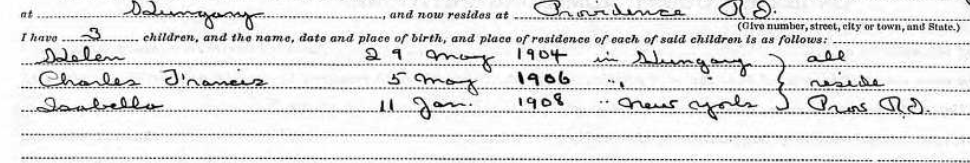 at Hungary, and now resides at Providence R.I.
(Give number, street, city or town, and State.)
I have 3 children, and the name, date and place of birth, and place of residence of each of said children is as follows:
Helen 29 May 1904 in Hungary } all
Charles Francis 5 May 1906 " " } reside
Isabella 11 Jan. 1908 " New York } Prov R.I.